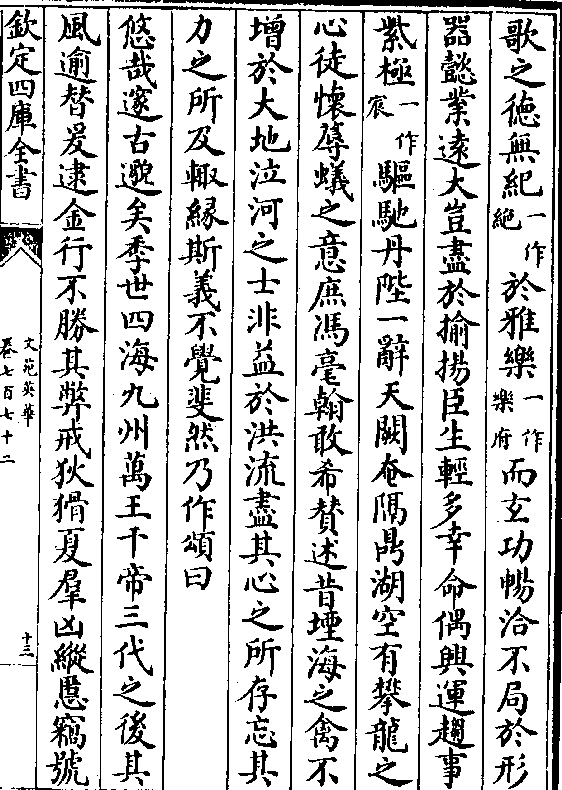 歌之德無紀一作絕於雅樂一作樂府而玄功暢洽不局於形
器懿業遠大豈盡於揄揚臣生輕多幸命偶興運趨事
紫極一作宸驅馳丹陛一辭天闕奄隔鼎湖空有攀龍之
心徒懷辱蟻之意庶馮毫翰敢希贊述昔堙海之禽不
增於大地泣河之士非益於洪流盡其心之所存忘其
力之所及輙緣斯義不覺斐然乃作頌曰
悠哉邃古邈矣季世四海九州萬王千帝三代之後其
風逾替爰逮金行不勝其弊戒狄猾夏羣凶縱慝竊號
欽定四庫全書
文苑英華
卷七百七十二
十三